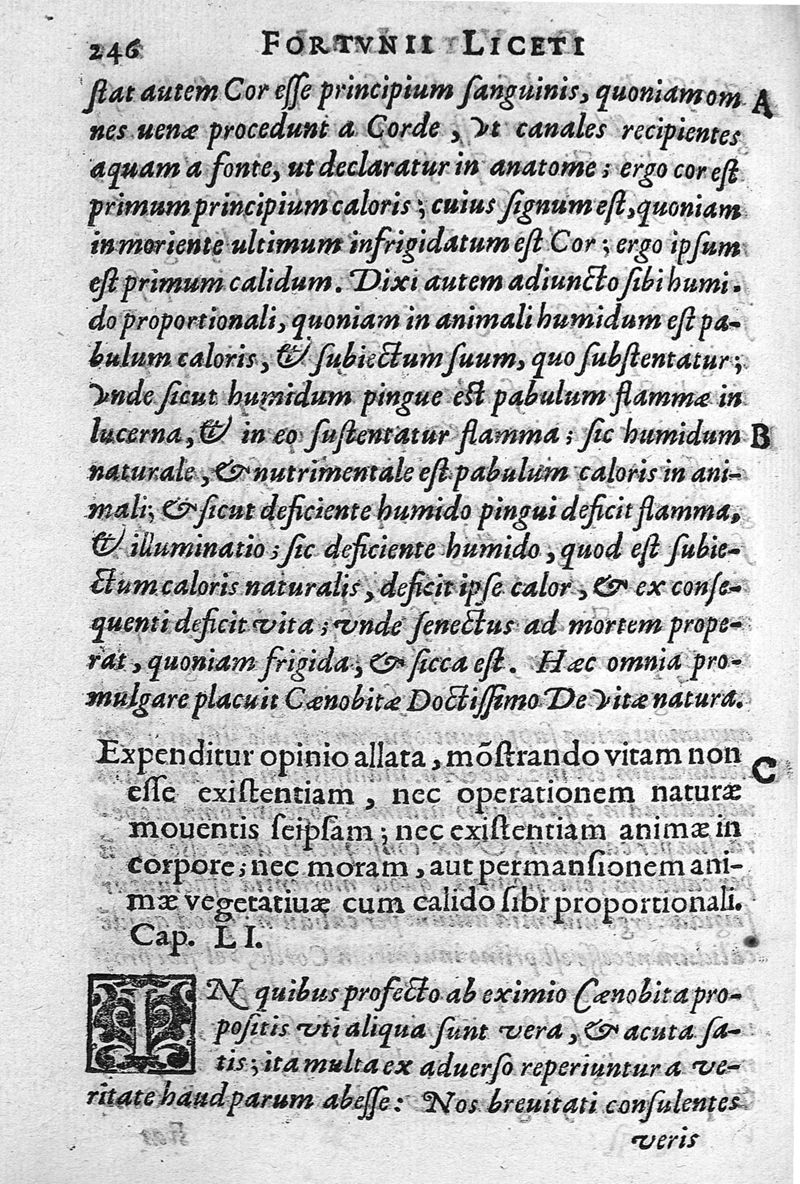 246 FORTVNII LICETI
ſtat autem Cor eſſe principium ſanguinis, quoniam om A
nes uenæ procedunt a Corde, vt canales recipientes
aquam a fonte, ut declaratur in anatome; ergo cor eſt
primum principium caloris; cuius ſignum eſt, quoniam
in moriente ultimum infrigidatum eſt Cor; ergo ipſum
eſt primum calidum. Dixi autem adiuncto ſibi humi-
do proportionali, quoniam in animali humidum eſt pa-
bulum caloris, & ſubiectum ſuum, quo ſubſtentatur;
vnde ſicut humidum pingue est pabulum flammæ in
lucerna, & in eo ſuſtentatur flamma; ſic humidum B
naturale, & nutrimentale eſt pabulum caloris in ani-
mali; & ſicut deficiente humido pingui deficit flamma,
& illuminatio; ſic deficiente humido, quod eſt ſubie-
ctum caloris naturalis, deficit ipſe calor, & ex conſe-
quenti deficit vita; vnde ſenectus ad mortem prope-
rat, quoniam frigida, & ſicca eſt. Hæc omnia pro-
mulgare placuit Cænobitæ Doctiſſimo De vitæ natura.
Expenditur opinio allata, mõſtrando vitam non C
eſſe exiſtentiam, nec operationem naturæ
mouentis ſeipſam; nec exiſtentiam animæ in
corpore; nec moram, aut permanſionem ani-
mæ vegetatiuæ cum calido ſibi proportionali.
Cap. LI.
IN quibus profecto ab eximio Cænobita pro-
poſitis vti aliqua ſunt vera, & acuta ſa-
tis; ita multa ex aduerſo reperiuntur a ve-
ritate haud parum abeſſe: Nos breuitati conſulentes
veris